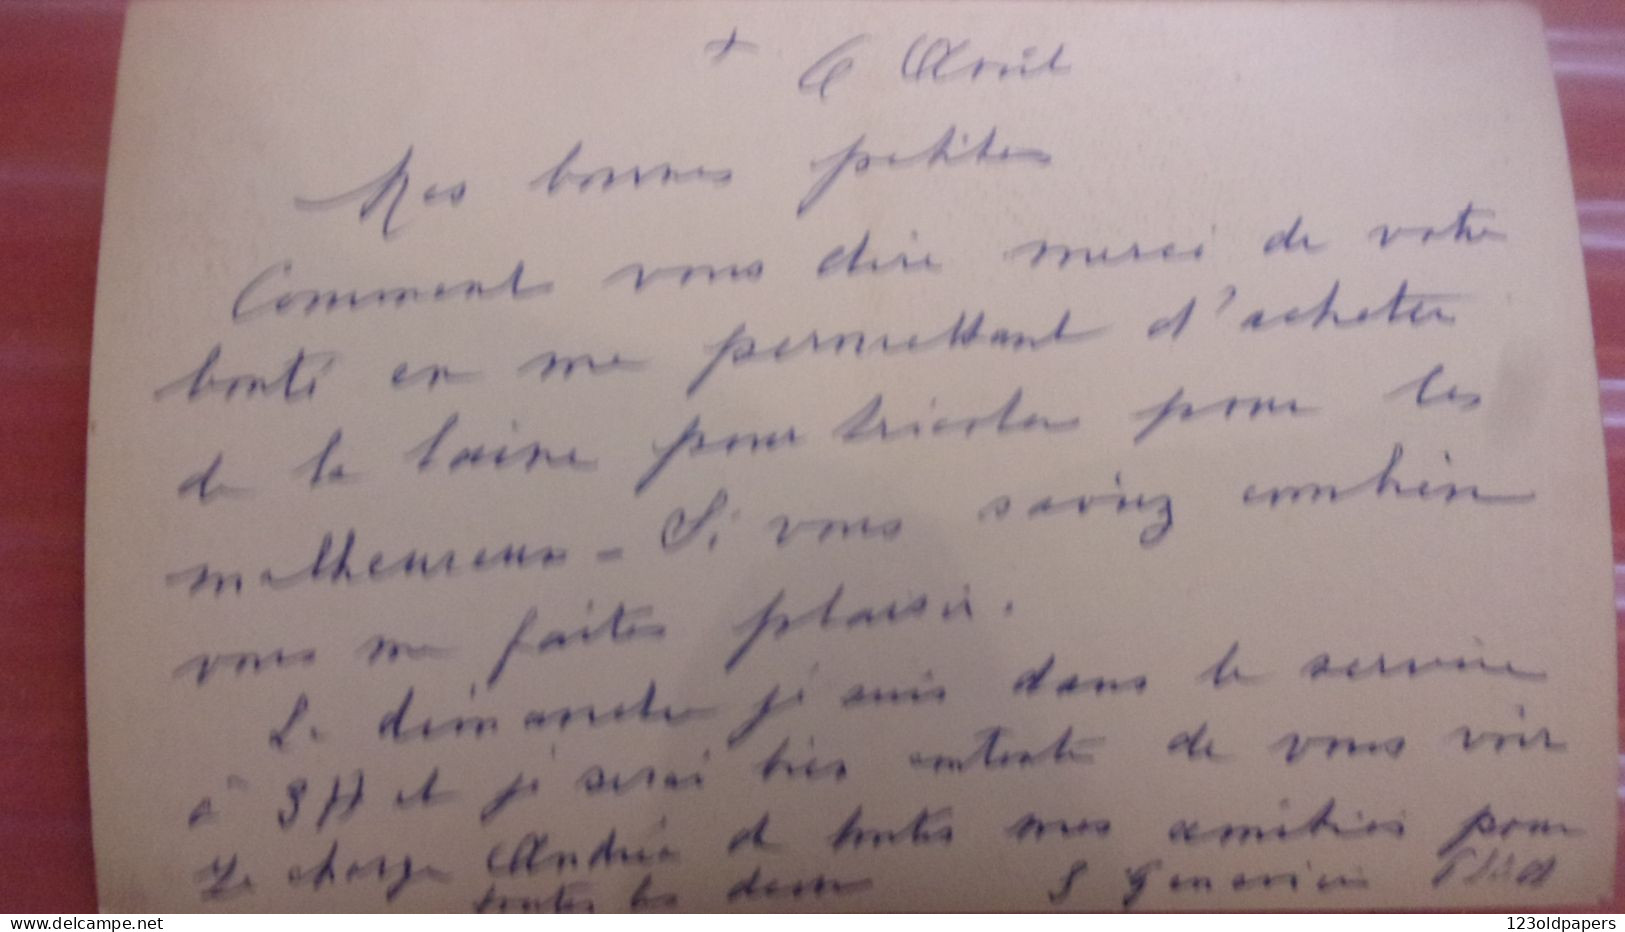 + 6 Août
Mes bonnes petites
Comment vous dire merci de votre
bonté en me permettant d'acheter
de la laine pour tricoter pour les
malheureux - Si vous saviez combien
vous me faites plaisir.
Le dimanche je suis dans le service
à 3H et je serai très contente de vous voir
Je charge Andrée de toutes mes amitiés pour
toutes les deux S Geneviève
www.delcampe.net 123oldpapers